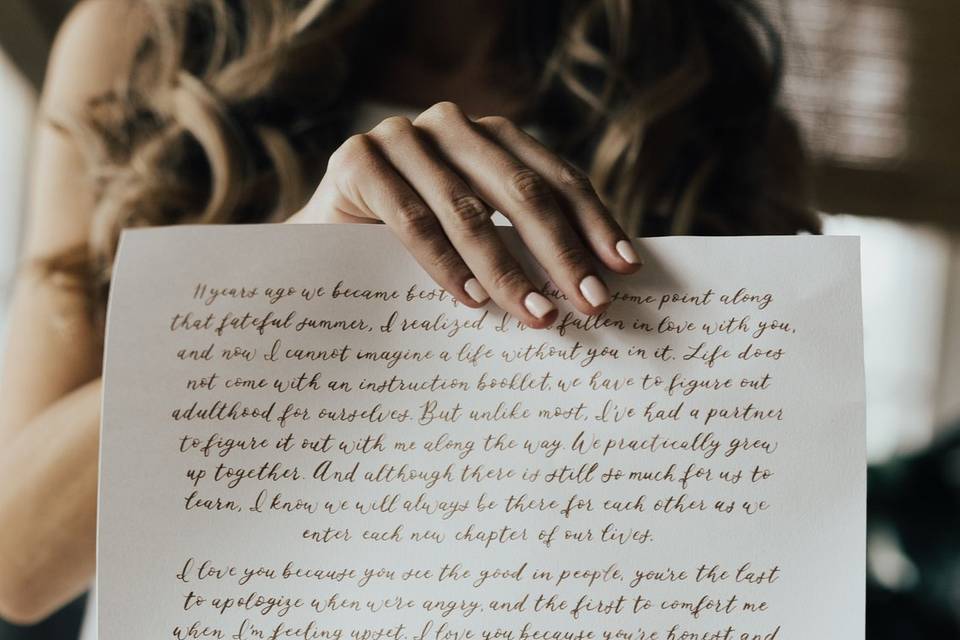 11 years ago we became best but some point along
that fateful summer, I realized I fallen in love with you,
and now I cannot imagine a life without you in it. Life does
not come with an instruction booklet, we have to figure out
adulthood for ourselves. But unlike most, I've had a partner
to figure it out with me along the way. We practically grew
up together. And although there is still so much for us to
learn, I know we will always be there for each other as we
enter each new chapter of our lives.
I love you because you see the good in people, you're the last
to apologize when we're angry, and the first to comfort me
when I'm feeling upset. I love you because you're honest and